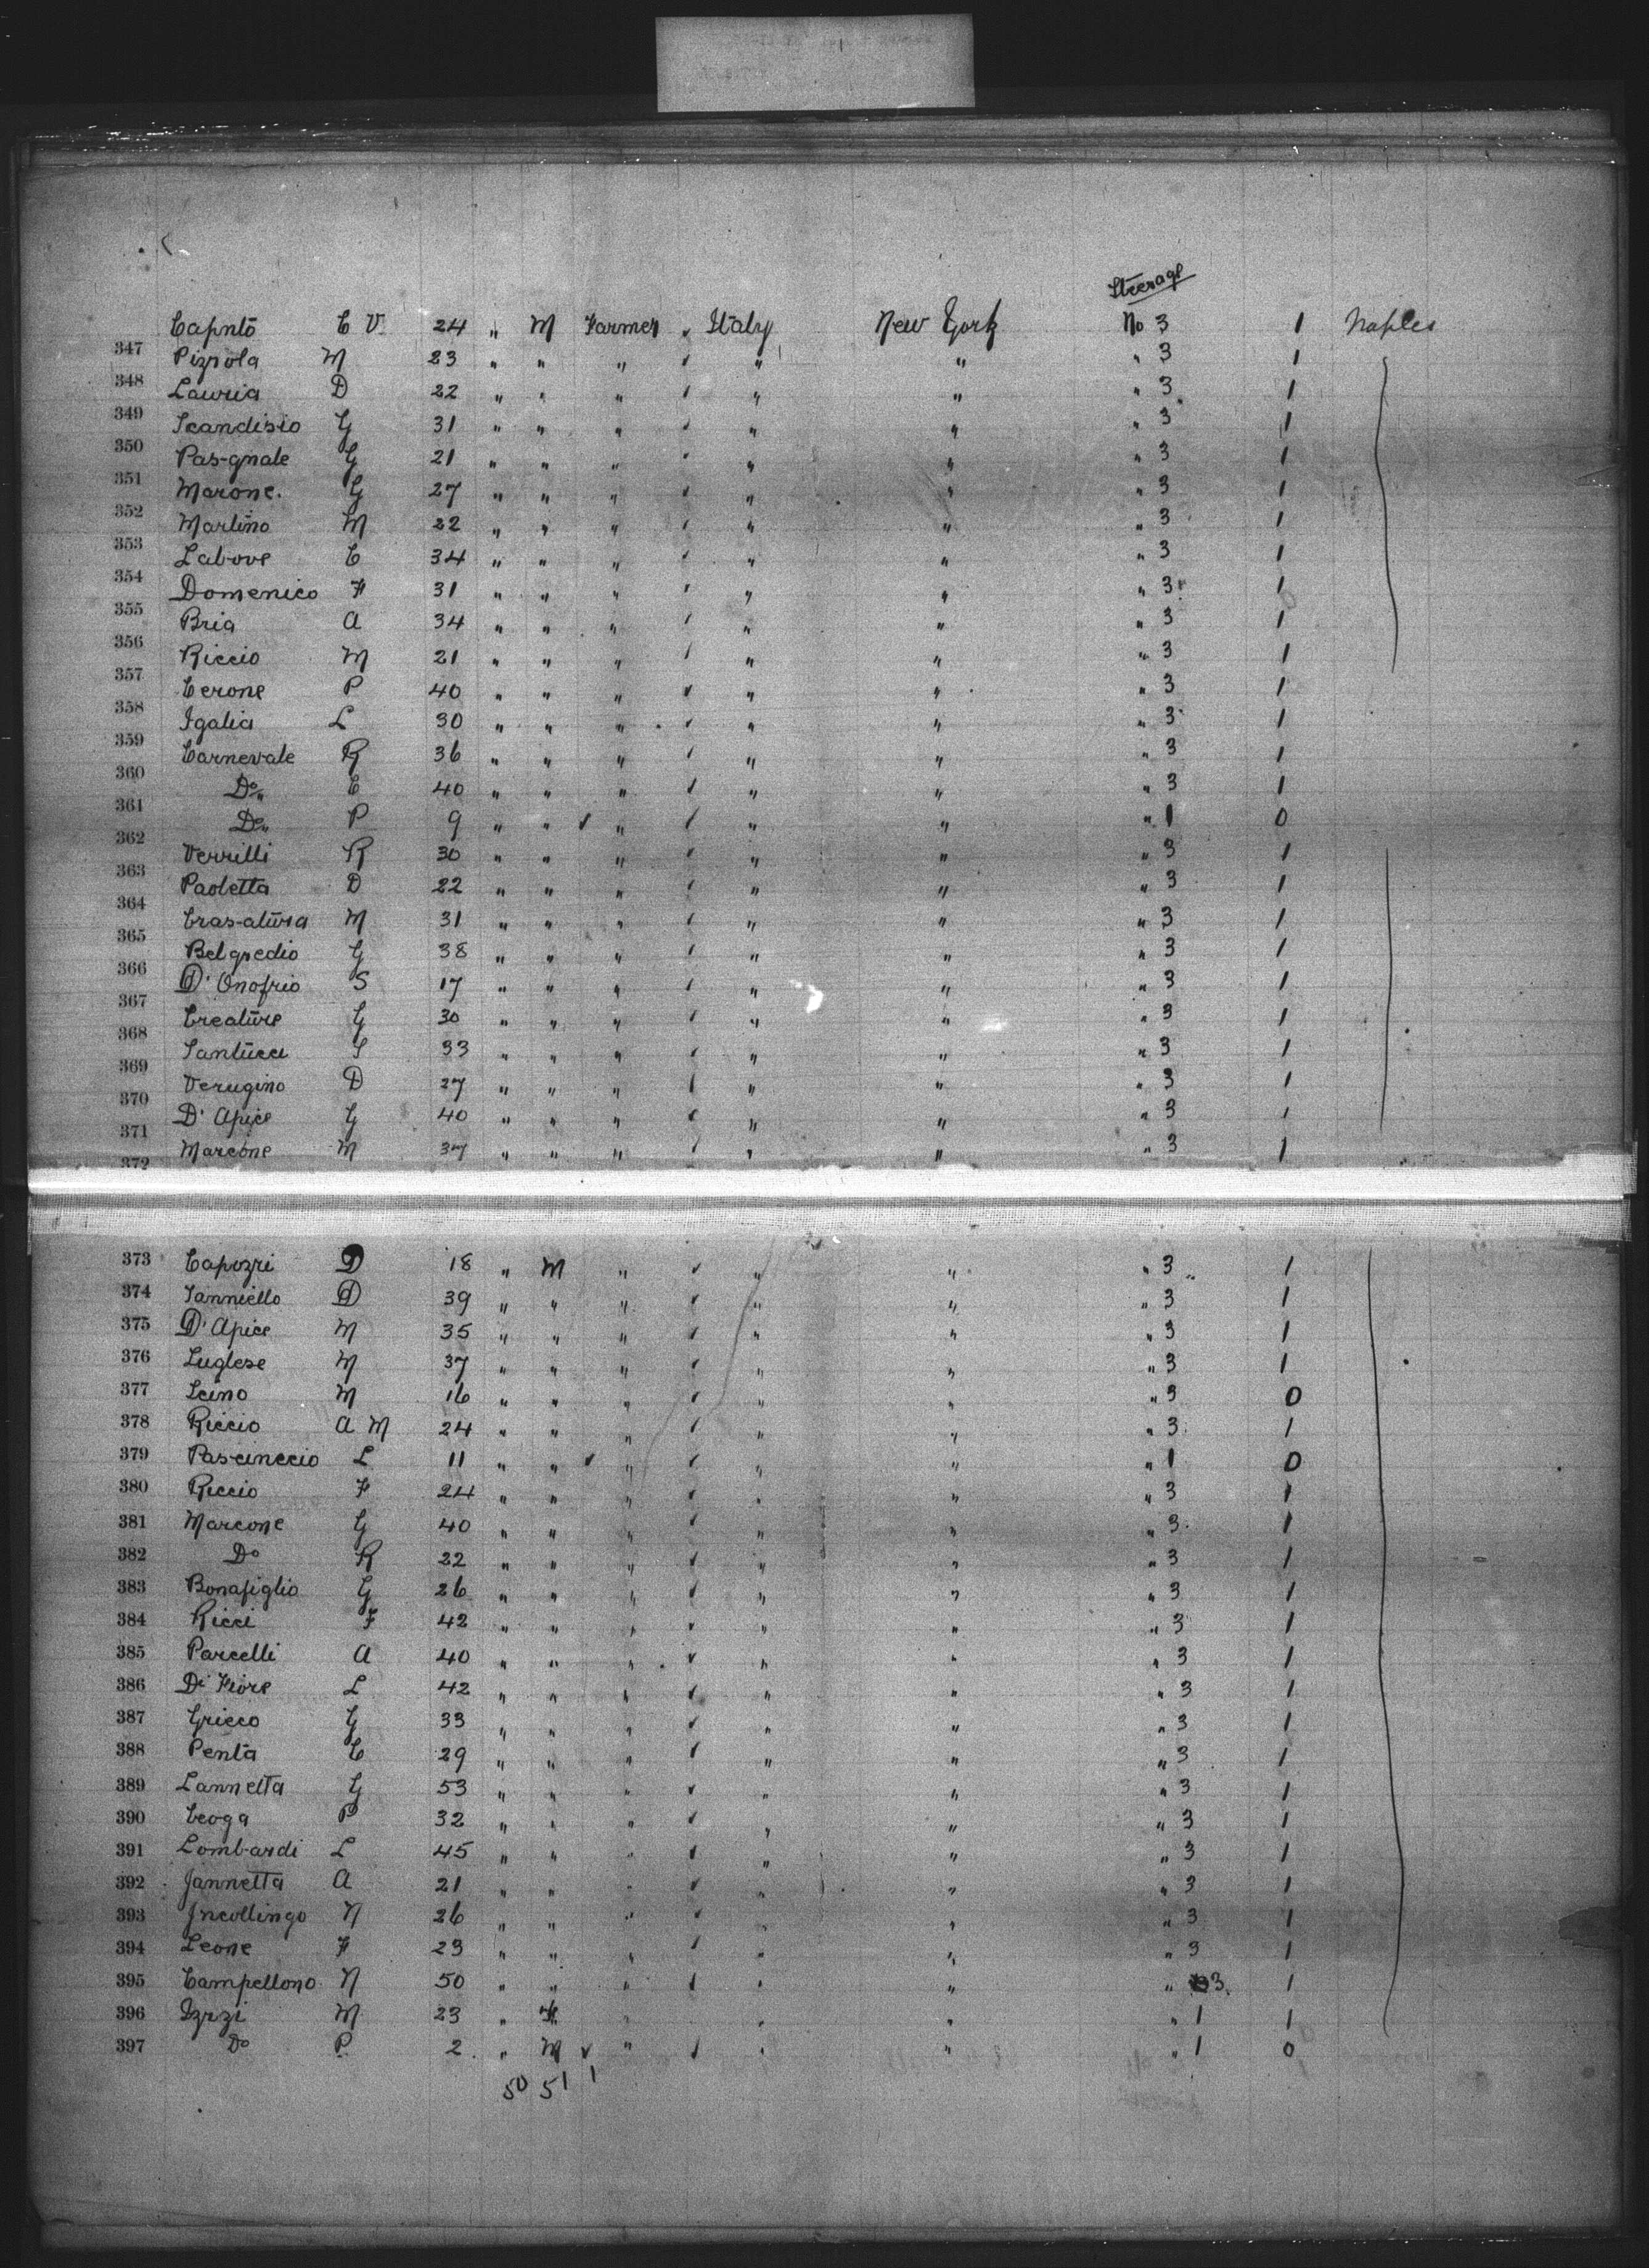 Steerage
Caputo C V 24 " M Farmer " Italy New York No 3 1 Naples
347 Pizzola M 23 " " " ✓ " " " 3 1
348 Lauria D 22 " " " ✓ " " " 3 1
349 Scandisio G 31 " " " ✓ " " " 3 1
350 Pas-quale G 21 " " " ✓ " " " 3 1
351 Marone. G 27 " " " ✓ " " " 3 1
352 Martino M 22 " " " ✓ " " " 3 1
353 Labove C 34 " " " ✓ " " " 3 1
354 Domenico F 31 " " " ✓ " " " 3 1
355 Bria A 34 " " " ✓ " " " 3 1
356 Riccio M 21 " " " ✓ " " " 3 1
357 Cerone P 40 " " " ✓ " " " 3 1
358 Igalia L 30 " " " ✓ " " " 3 1
359 Carnevale R 36 " " " ✓ " " " 3 1
360 Do " C 40 " " " ✓ " " " 3 1
361 Do " P 9 " " ✓ " ✓ " " " 1 0
362 Verrilli R 30 " " " ✓ " " " 3 1
363 Paoletta D 22 " " " ✓ " " " 3 1
364 Cras-atura M 31 " " " ✓ " " " 3 1
365 Belgredio G 38 " " " ✓ " " " 3 1
366 D'Onofrio S 17 " " " ✓ " " " 3 1
367 Creature G 30 " " " ✓ " " " 3 1
368 Santucci S 33 " " " ✓ " " " 3 1
369 Verugino D 27 " " " ✓ " " " 3 1
370 D'Apice G 40 " " " ✓ " " " 3 1
371 Marcone M 37 " " " ✓ " " " 3 1
372
373 Capozri D 18 " M " ✓ " " " 3 1
374 Ianniello D 39 " " " ✓ " " " 3 1
375 D'Apice M 35 " " " ✓ " " " 3 1
376 Luglese M 37 " " " ✓ " " " 3 1
377 Scino M 16 " " " ✓ " " " 3 0
378 Riccio A M 24 " " " ✓ " " " 3 1
379 L 11 " " ✓ " ✓ " " " 1 0
380 Riccio F 24 " " " ✓ " " " 3 1
381 Marcone G 40 " " " ✓ " " " 3 1
382 Do R 22 " " " ✓ " " " 3 1
383 Bonafiglio G 26 " " " ✓ " " " 3 1
384 Ricci F 42 " " " ✓ " " " 3 1
385 Parcelli A 40 " " " ✓ " " " 3 1
386 Di Fiore L 42 " " " ✓ " " " 3 1
387 Gricco G 33 " " " ✓ " " " 3 1
388 Penta C 29 " " " ✓ " " " 3 1
389 Lannetta G 53 " " " ✓ " " " 3 1
390 Ceoga P 32 " " " ✓ " " " 3 1
391 Lombardi L 45 " " " ✓ " " " 3 1
392 Jannetta A 21 " " " ✓ " " " 3 1
393 Jncollingo N 26 " " " ✓ " " " 3 1
394 Leone F 23 " " " ✓ " " " 3 1
395 Campellono N 50 " " " ✓ " " " 3 1
396 Izrzi M 23 " F " " " " 1 1
397 Do P 2 " M ✓ " ✓ " " " 1 0
50 51 1